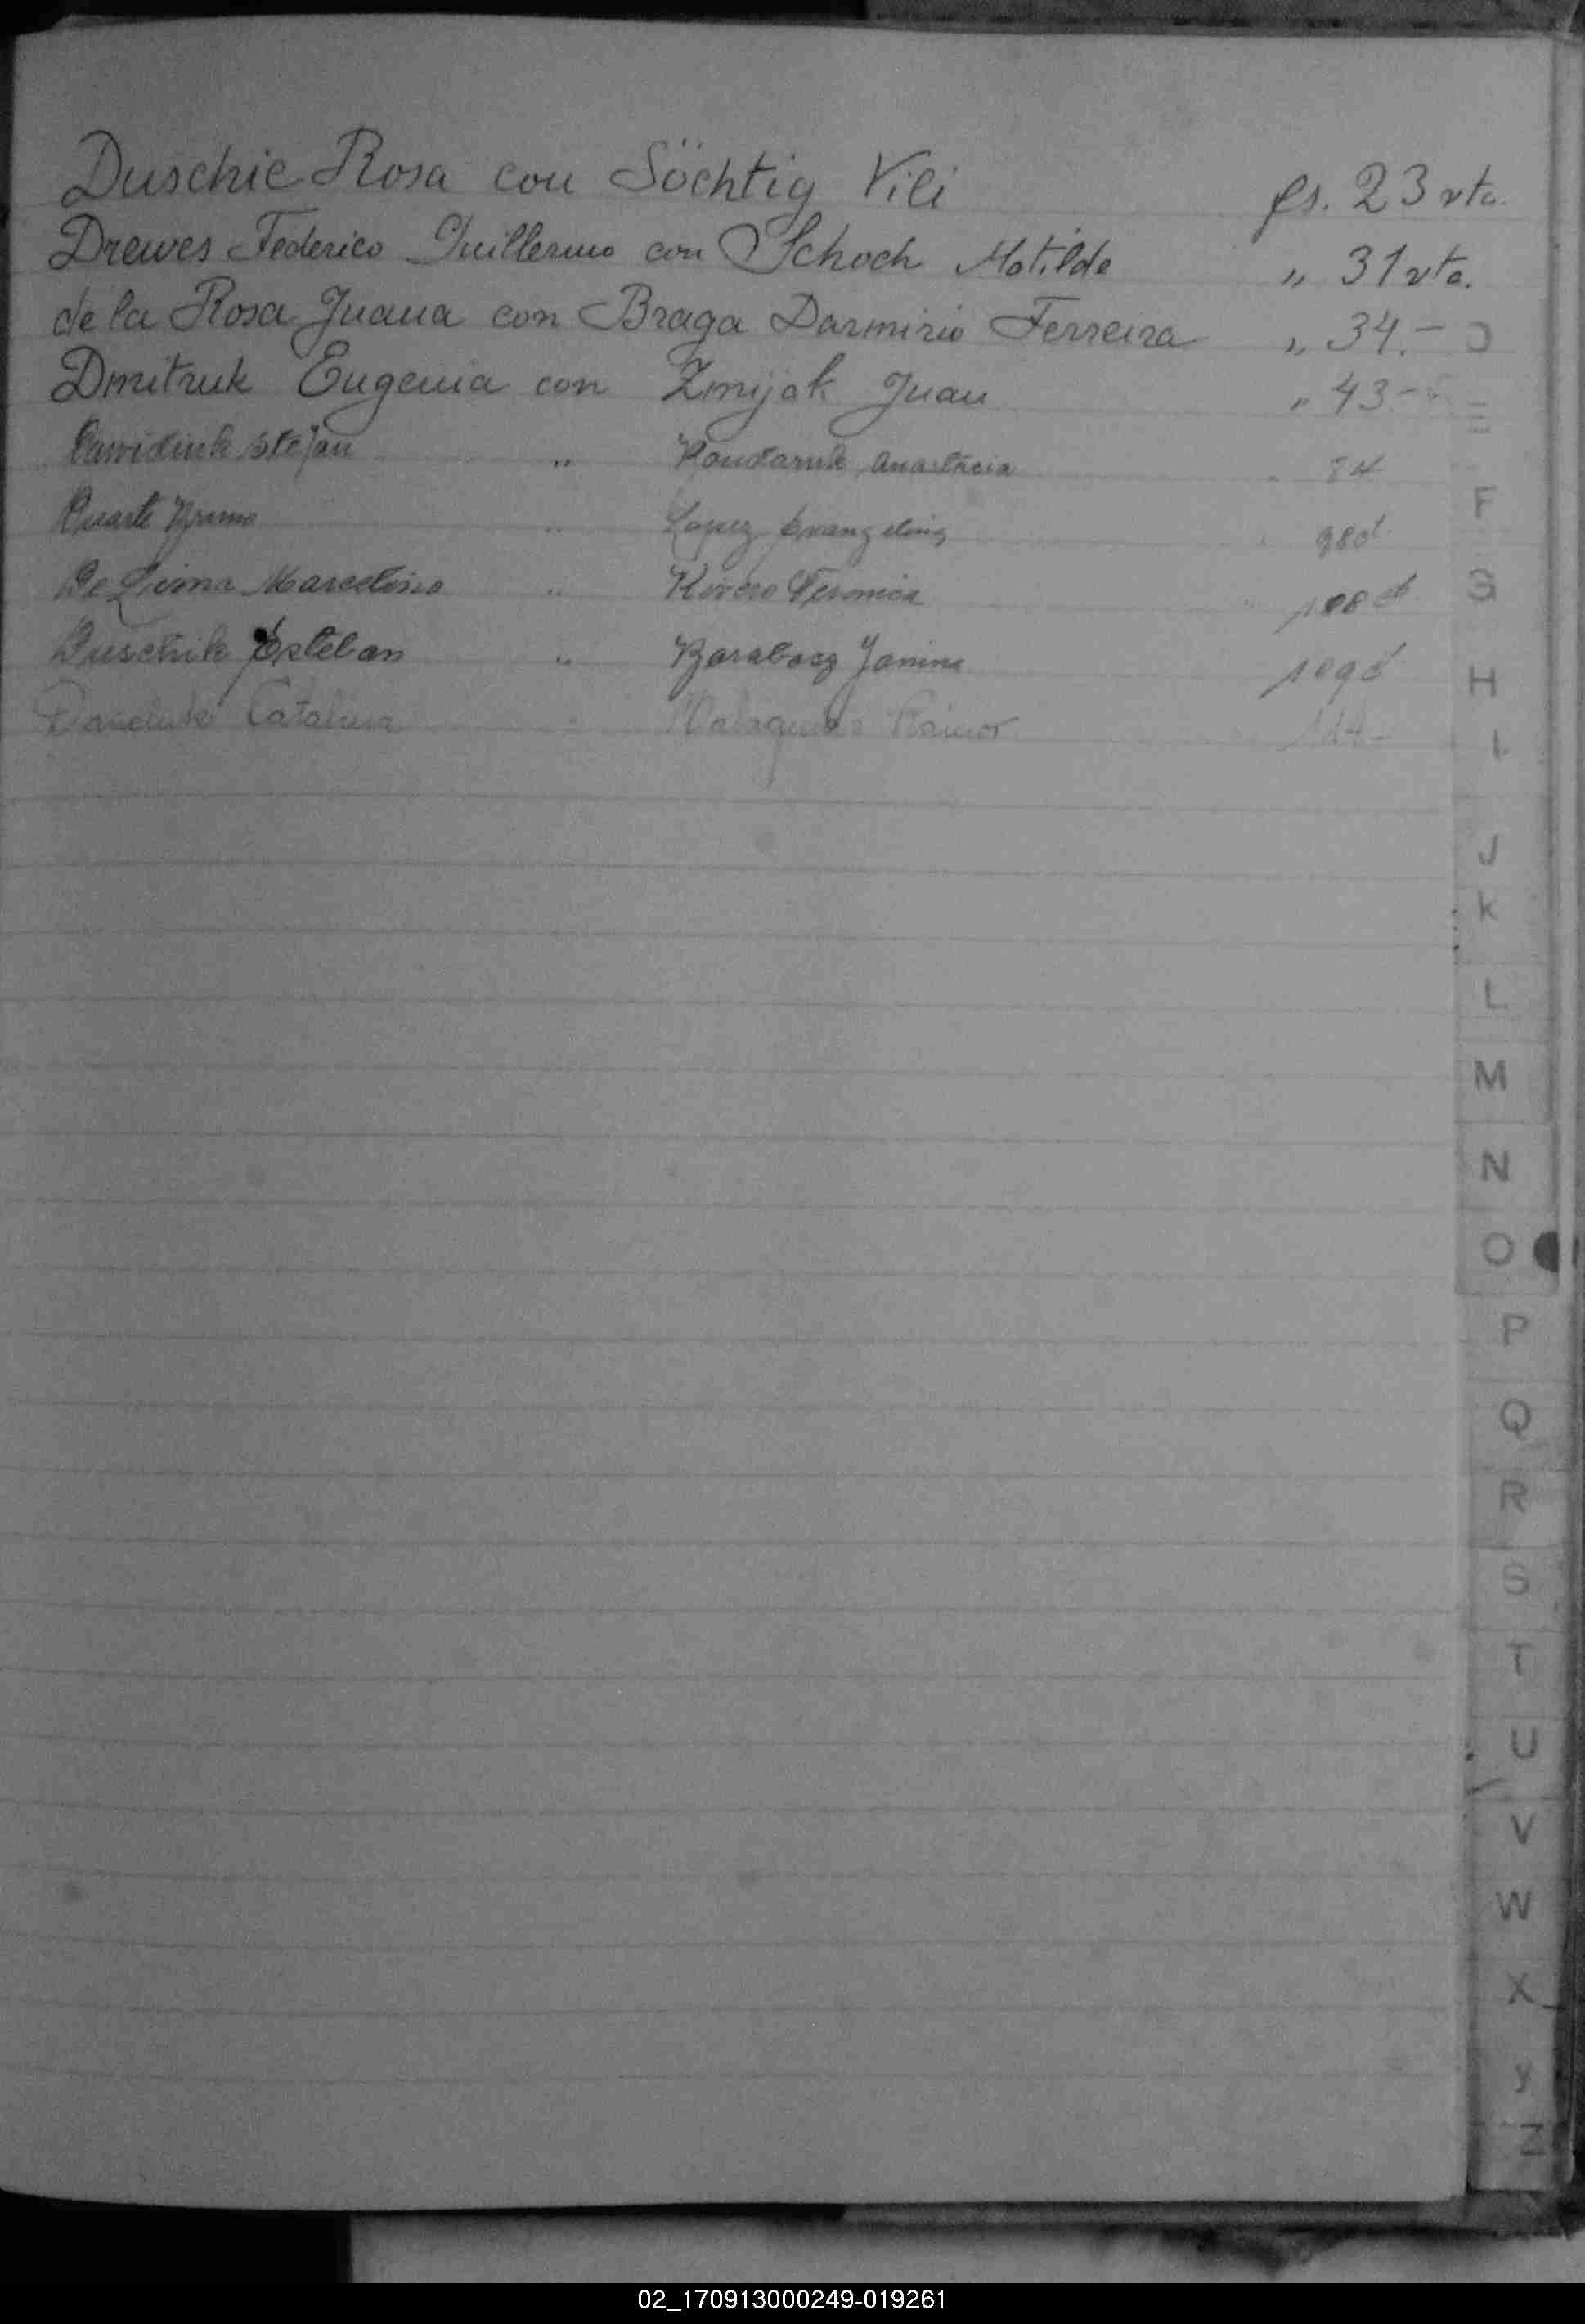 Duschic Rosa con Söchtig Vili fs. 23 vta.
Drewes Federico Guillermo con Schoch Matilde " 31 vta.
de la Rosa Juana con Braga Darmirio Ferreira " 34.-
Dmitruk Eugenia con Zmijak Juan " 43.-
Stefan " Anastacia 84
Duarte Bruno " Lopez 98d
De Lima Marcelino " Rivero Veronica 108d
Duschik Esteban " Barabasz Janina 109d
Daneluk Catalina "
F
G
H
I
J
K
L
M
N
O
P
Q
R
S
T
U
V
W
X
Y
Z
02_170913000249-019261